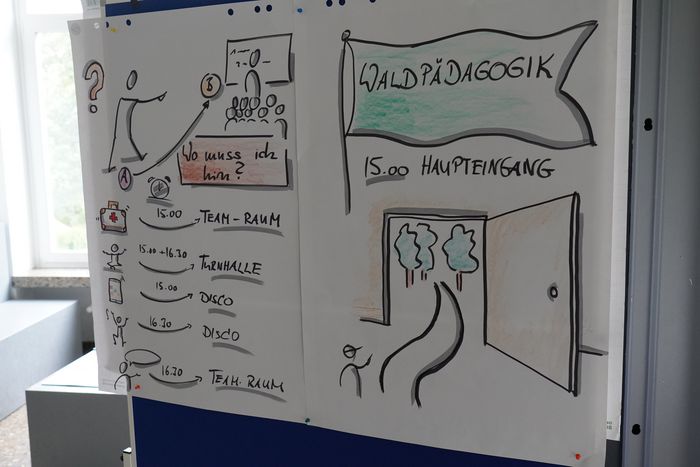 ?
1 —
2 —
B
A
Wo muss ich
hin?
15.00 TEAM-RAUM
15.00 + 16.30 TURNHALLE
15.00 DISCO
16.30 DISCO
16.30 TEAM-RAUM
WALDPÄDAGOGIK
15.00 HAUPTEINGANG